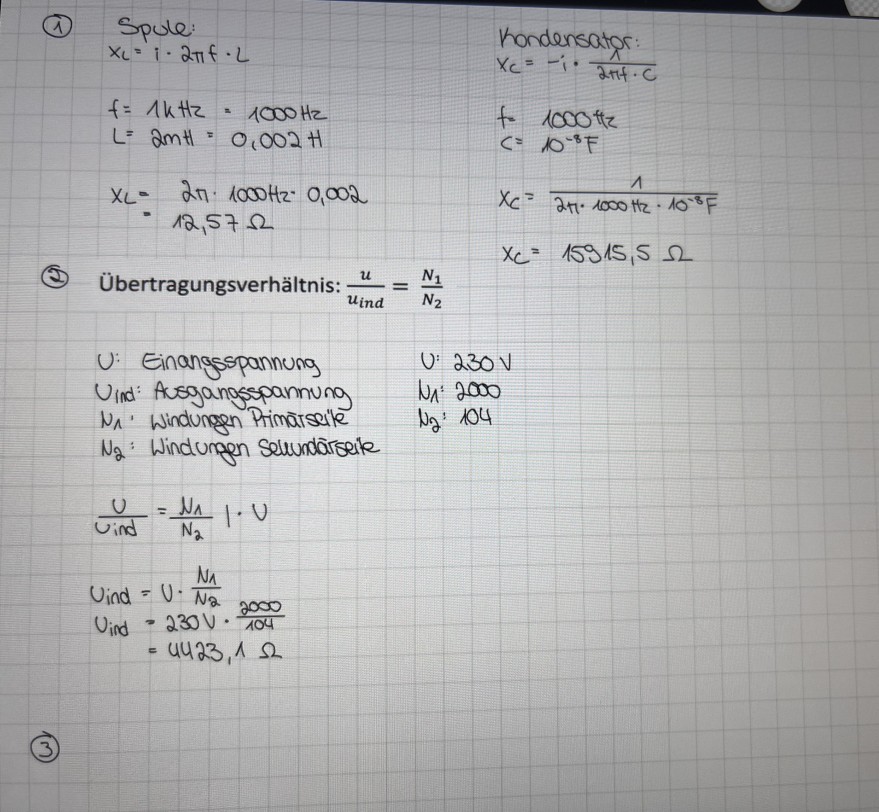 ①
Spule:
XL = i · 2πf · L
f = 1kHz = 1000Hz
L = 2mH = 0,002H
XL = 2π · 1000Hz · 0,002
= 12,57 Ω
Kondensator:
XC = -i · 1/(2πf · C)
f = 1000Hz
C = 10⁻⁸F
XC = 1/(2π · 1000Hz · 10⁻⁸F)
XC = 15915,5 Ω
②
Übertragungsverhältnis: u/u_ind = N₁/N₂
U: Einangsspannung
Uind: Ausgangsspannung
N1: Windungen Primärseite
N2: Windungen Sekundärseite
U: 230V
N1: 2000
N2: 104
U/Uind = N1/N2 | · U
Uind = U · N1/N2
Uind = 230V · 2000/104
= 4423,1 Ω
③